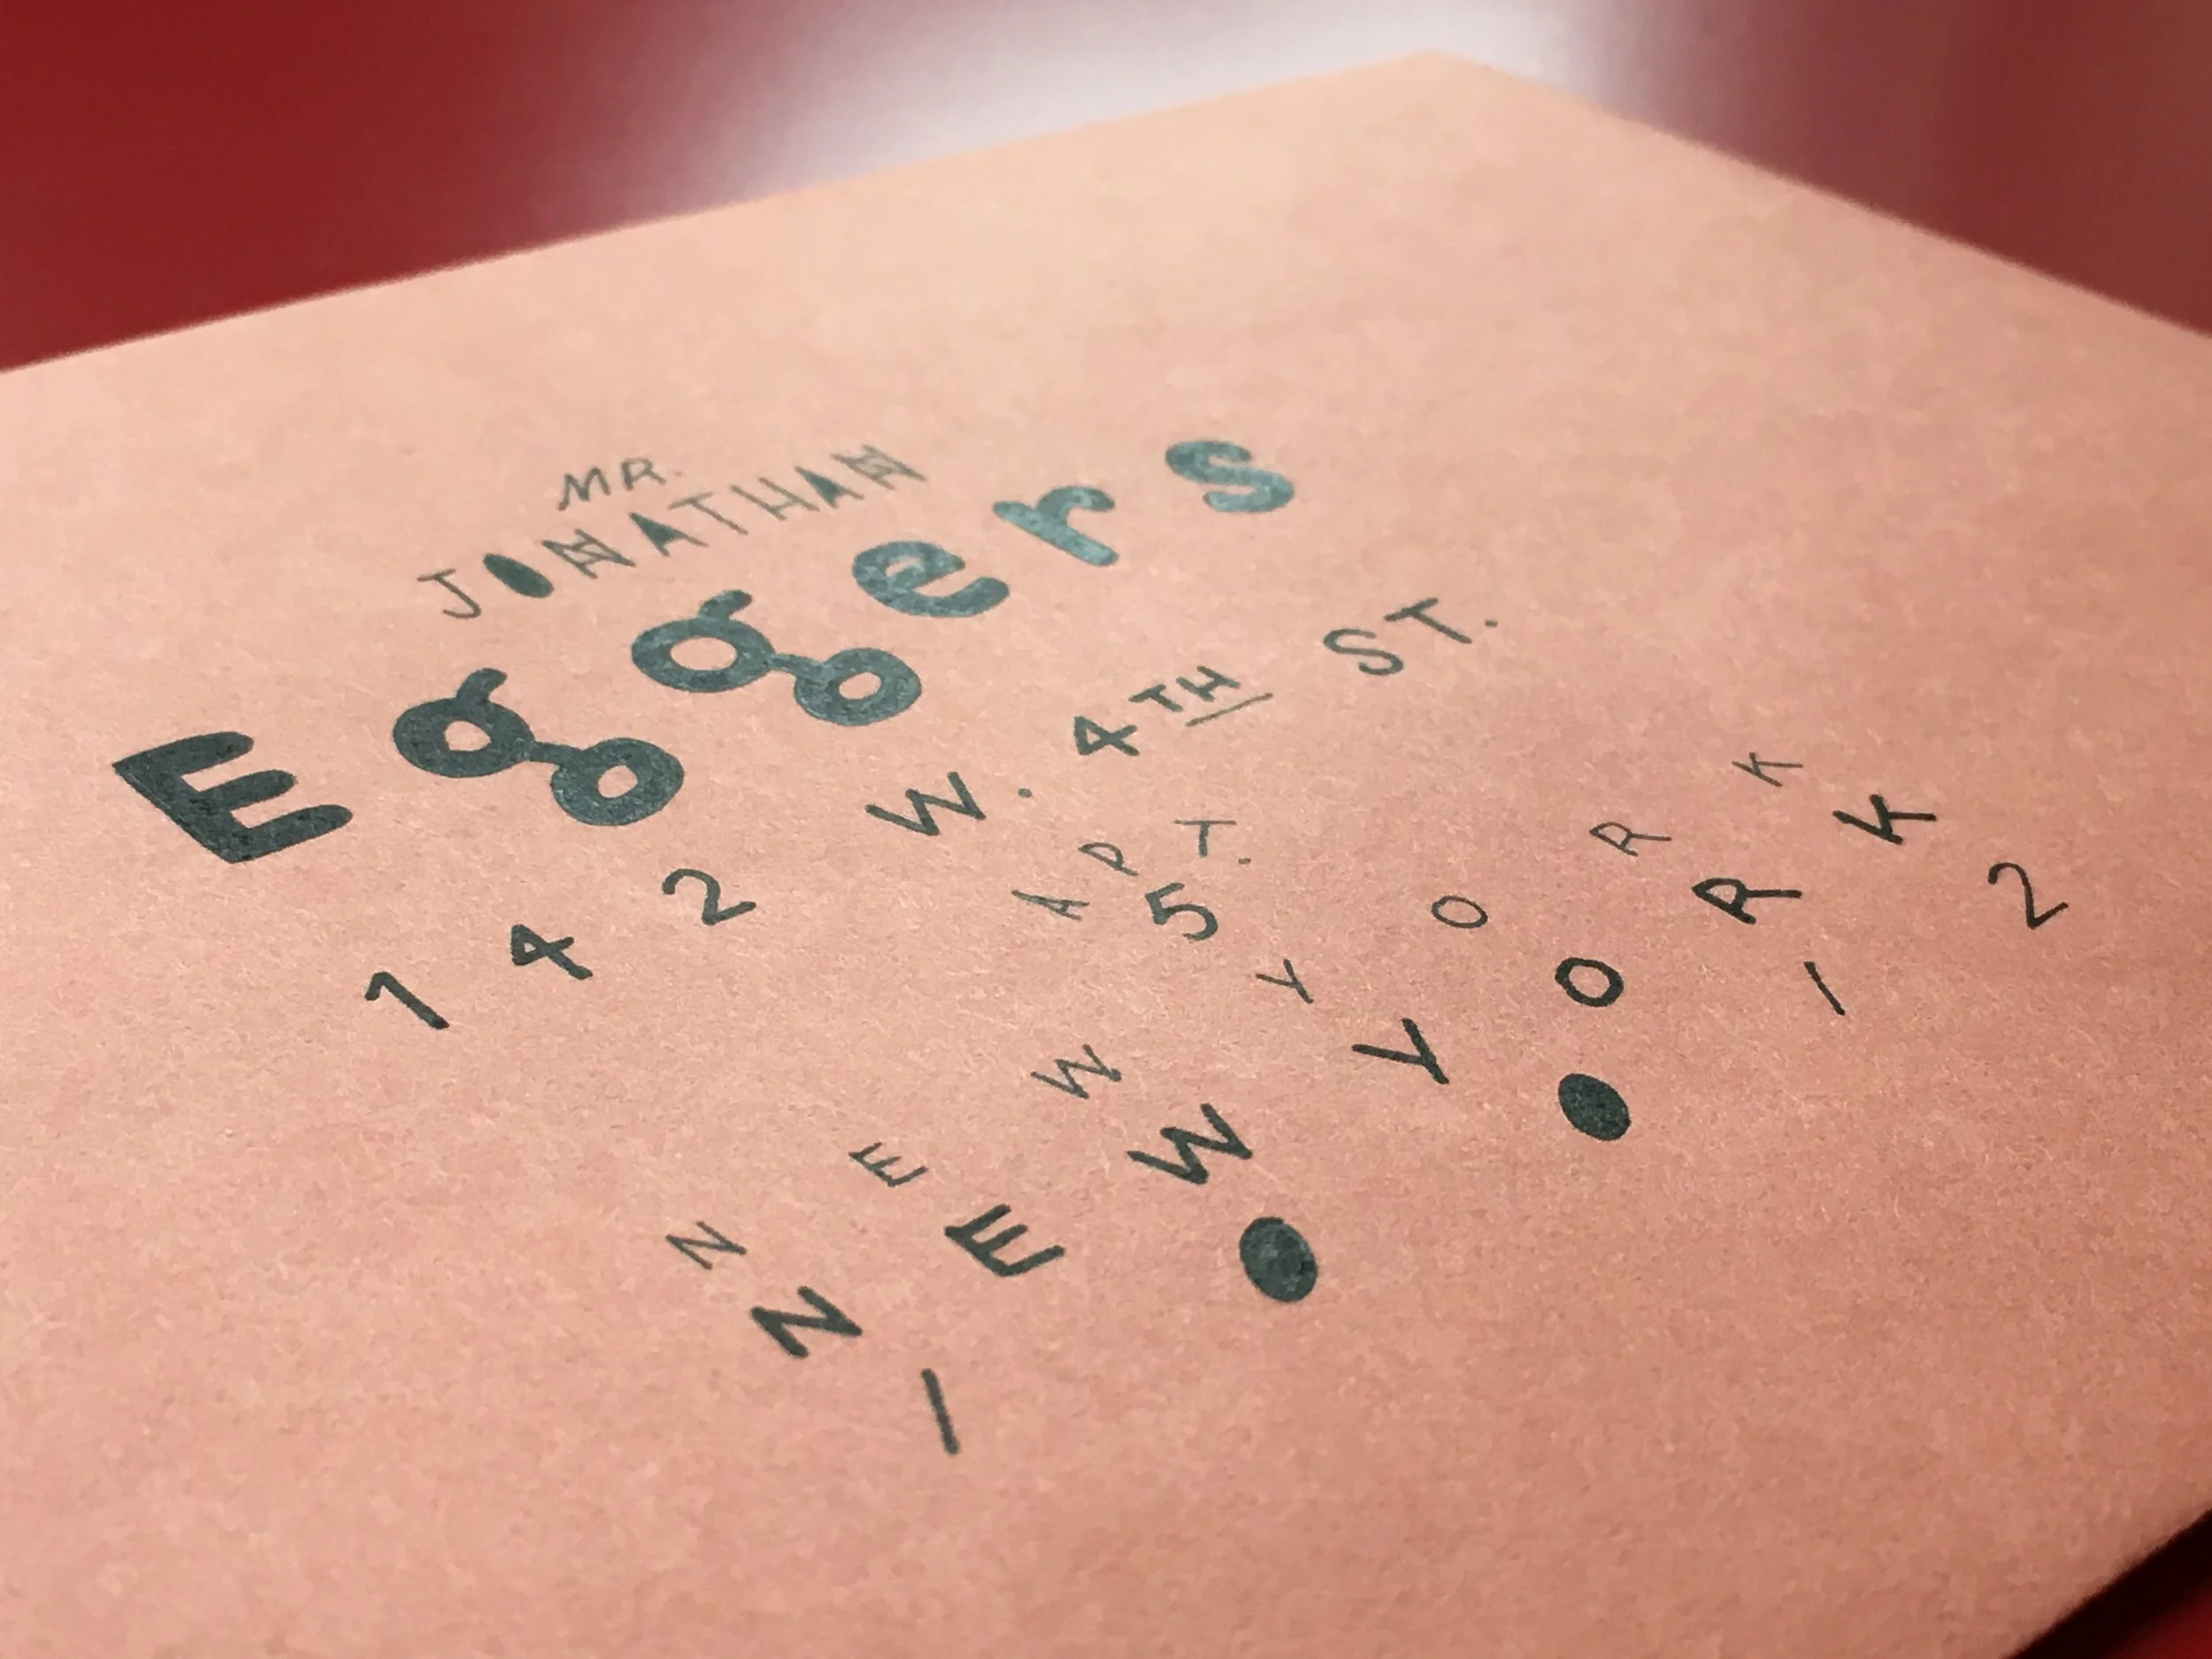 MR.
JONATHAN
Eggers
142 W. 4TH ST.
APT.
5
NEW YORK
NEW YORK
10012